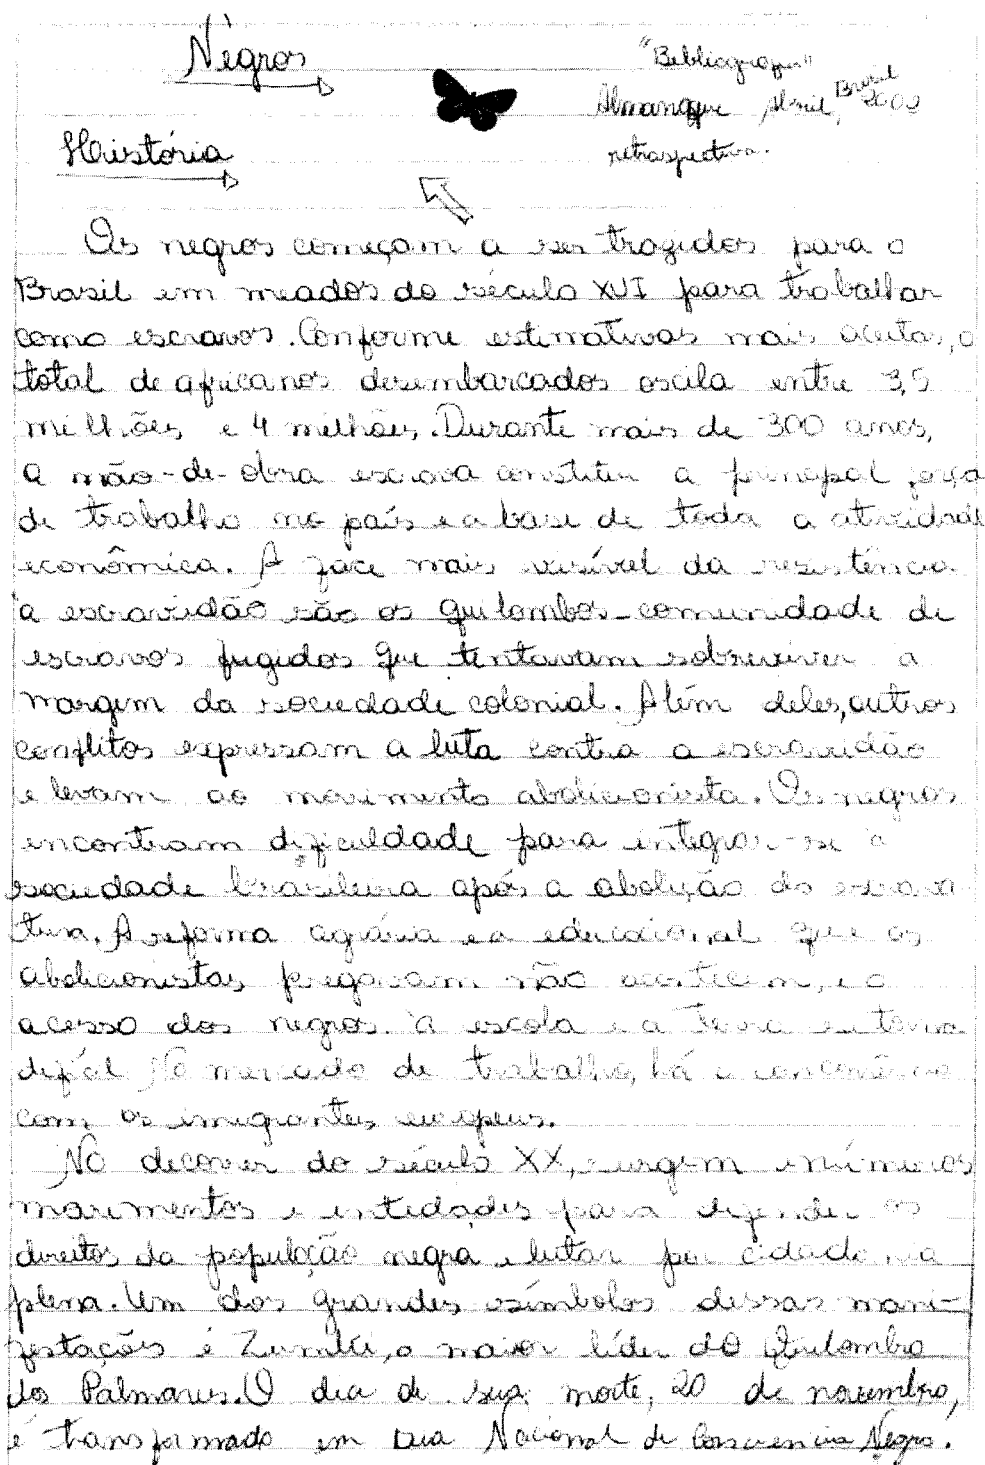 Negros
"Bibliografia"
Almanaque Abril, Brasil 2002
retrospectiva.
História
Os negros começam a ser tragidos para o
Brasil em meados do século XVI para trabalhar
como escravos. Conforme estimativas mais aceitas, o
total de africanos desembarcados oscila entre 3,5
milhões e 4 milhões. Durante mais de 300 anos,
a mão-de-obra escrava constitui a principal força
de trabalho no país e a base de toda a atividade
econômica. A face mais visível da resistência
à escravidão são os quilombos - comunidade de
escravos fugidos que tentavam sobreviver a
margem da sociedade colonial. Além deles, outros
conflitos expressam a luta contra a escravidão
e levam ao movimento abolicionista. Os negros
encontram dificuldade para integrar-se a
sociedade brasileira após a abolição da escrava
tura. A reforma agrária e a educacional que os
abolicionistas pregavam não acontecem, e o
acesso dos negros à escola e a Terra se torna
difícil No mercado de trabalho, há a concorrência
com os imigrantes europeus.
No decorrer do século XX, surgem inúmeros
movimentos e entidades para defender os
direitos da população negra e lutar por cidadania
plena. Um dos grandes símbolos dessas mani-
festações é Zumbi, o maior líder do Quilombo
dos Palmares. O dia de sua morte, 20 de novembro,
é transformado em Dia Nacional de Consciência Negra.